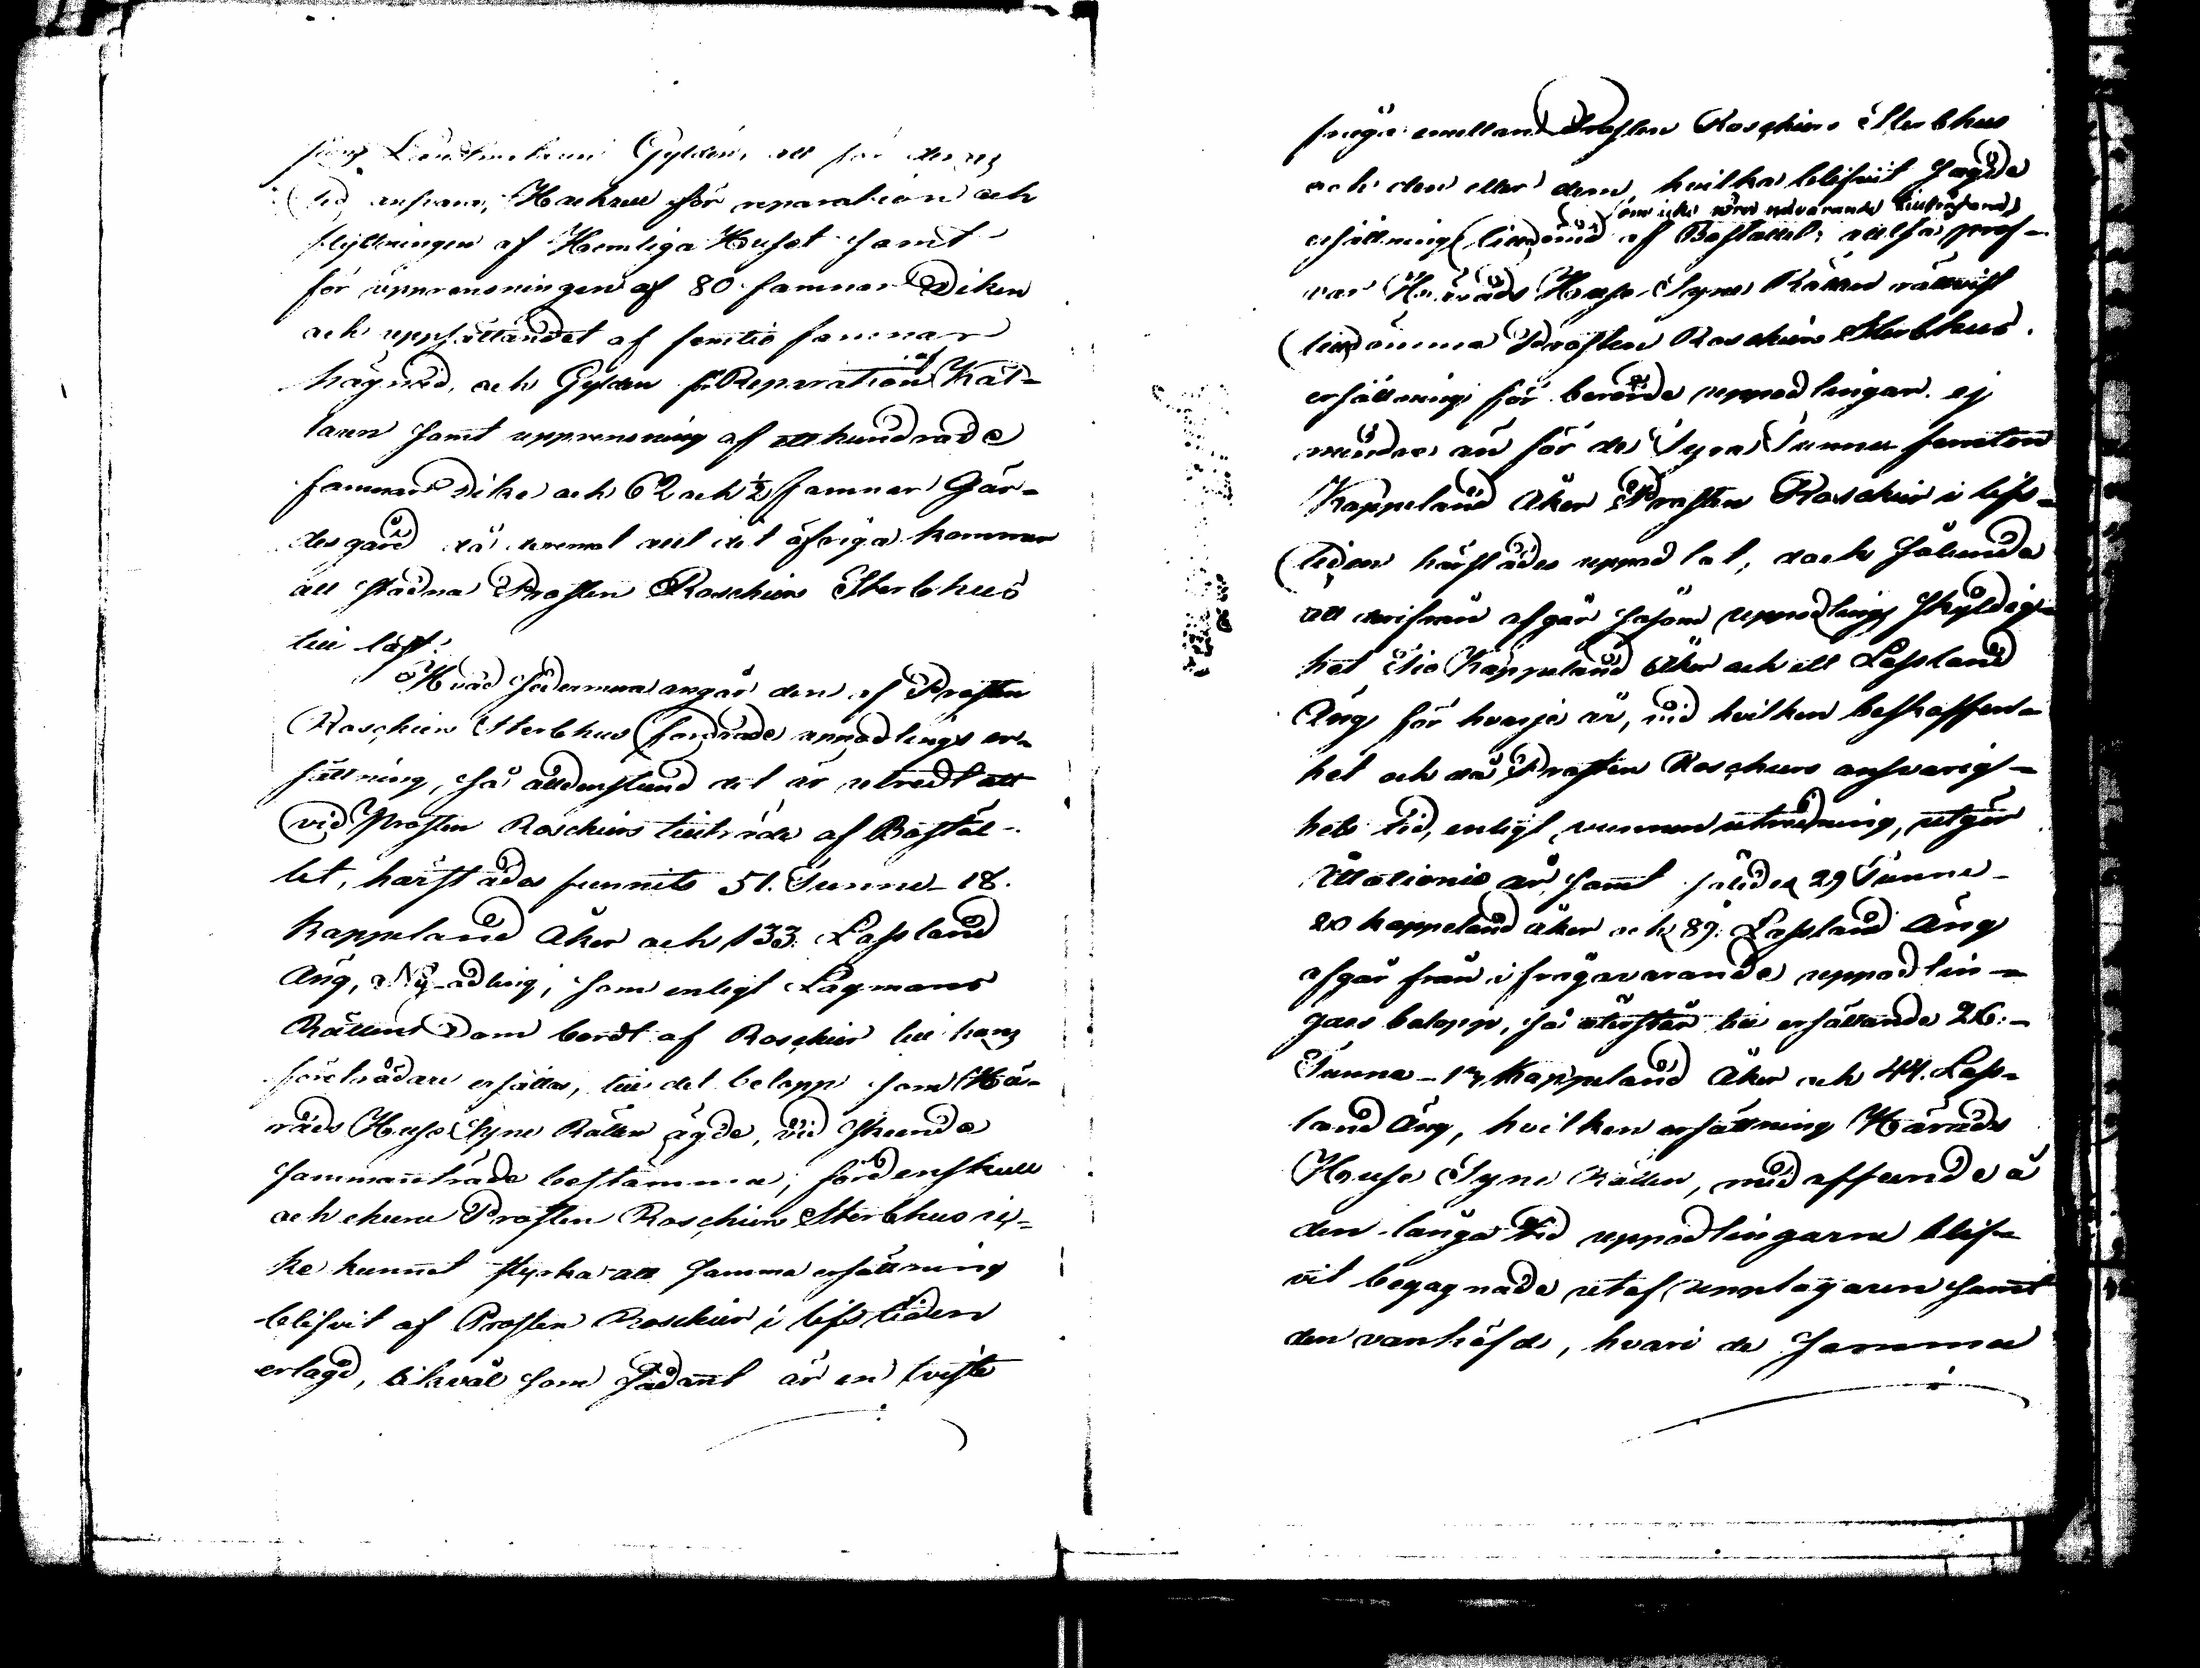 Gyldén, att för deras
tid ansvara, Hackzell för reparation och
flyttningen af Hemliga Huset samt
för upprensningen af 80 famnar Diken
och uppsättandet af femtio famnar
hägnad, och Gylden för Reparation af Käl-
laren samt upprensning af etthundrade
famnar dike och 62 och ½ famnar Gär-
desgård, då deremot allt det öfriga kommer
att stadna Prosten Roschiers Sterbhus
till last.
Hvad sedermera angår den af Prosten
Roschiers Sterbhus fordrade uppodlings er-
sättning, så alldenstund det är utredt att
vid Prosten Roschiers tillträde af Bostäl-
let, härstädes funnits 51. Tunne- 18.
Kappeland Åker och 133. Lassland
Äng, Ny-odling, som enligt Lagmans
Rättens Dom bordt af Roschier till hans
företrädare ersättas, till det belopp som Hä-
rads Huse Syne Rätten ägde, vid skeende
sammanträde bestämma; fördenskull
och ehuru Prosten Roschiers Sterbhus ic-
ke kunnat styrka att samma ersättning
blifvit af Prosten Roschier i lifstiden
erlagd, likväl som sådant är en tviste
fråga emellan Prosten Roschiers Sterbhus
och den eller dem, hvilka blifvit sagde
om icke vore ndvarande
ersättning tilldömd af Bostället; alltså pröf-
var Härads Huse Syne Rätten rättvist
tilldömma Prosten Roschiers Sterbhus
ersättning för berörde uppodlingar, ej
mindre än för de Fyra Tunne femton
Kappeland Åker Prosten Roschier i lifs-
tiden härstädes uppodlat, dock sålunda
att derifrån afgår såsom uppodlings skyldig-
het Tio Kappeland Åker och ett Lassland
Äng för hvarje år, vid hvilken beskaffen-
het och då Prosten Roschiers ansvarig-
hets tid, enligt vunnen utredning, utgör
Åttationio år samt således 29 Tunne-
20 kappeland åker och 89. Lassland äng
afgår från ifrågavarande uppodlin-
gars belopp, så återstår till ersättande 26.-
Tunne- 13 Kappeland Åker och 44. Lass-
land Äng, hvilken ersättning Härads
Huse Syne Rätten, med afseende å
den långa tid uppodlingarne blif-
vit begagnade utaf upptagaren samt
den vanhäfd, hvari de samma